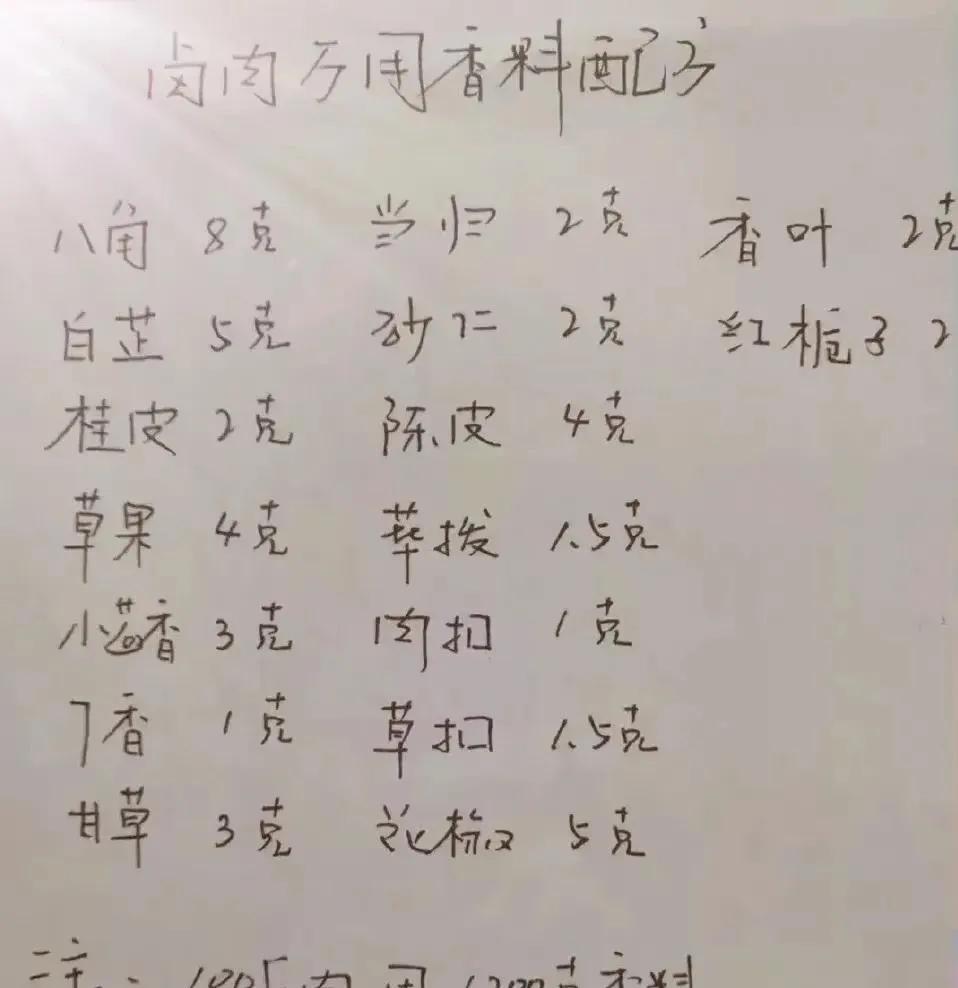 卤肉万用香料配方
八角 8克 当归 2克 香叶 2克
白芷 5克 砂仁 2克 红栀子 2
桂皮 2克 陈皮 4克
草果 4克 荜拨 1.5克
小茴香 3克 肉扣 1克
丁香 1克 草扣 1.5克
甘草 3克 花椒 5克
注: